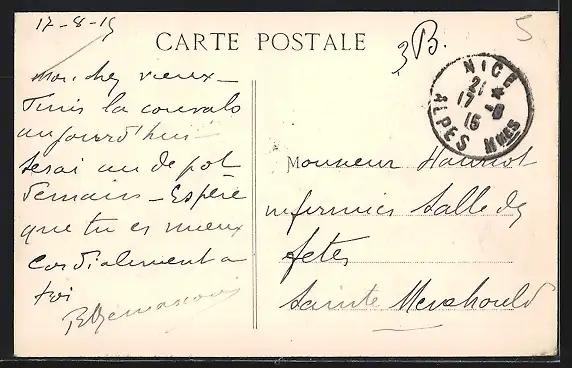 17-8-15
CARTE POSTALE
3B.
5
NICE
21 *
17 -8
15
ALPES Mmes
Mon cher vieux -
Finis la convalo
aujourd'hui
serai au dépot
demain - Espère
que tu es mieux
Cordialement a
toi
Monsieur
infirmier Salle des
fêtes
Sainte Menehould